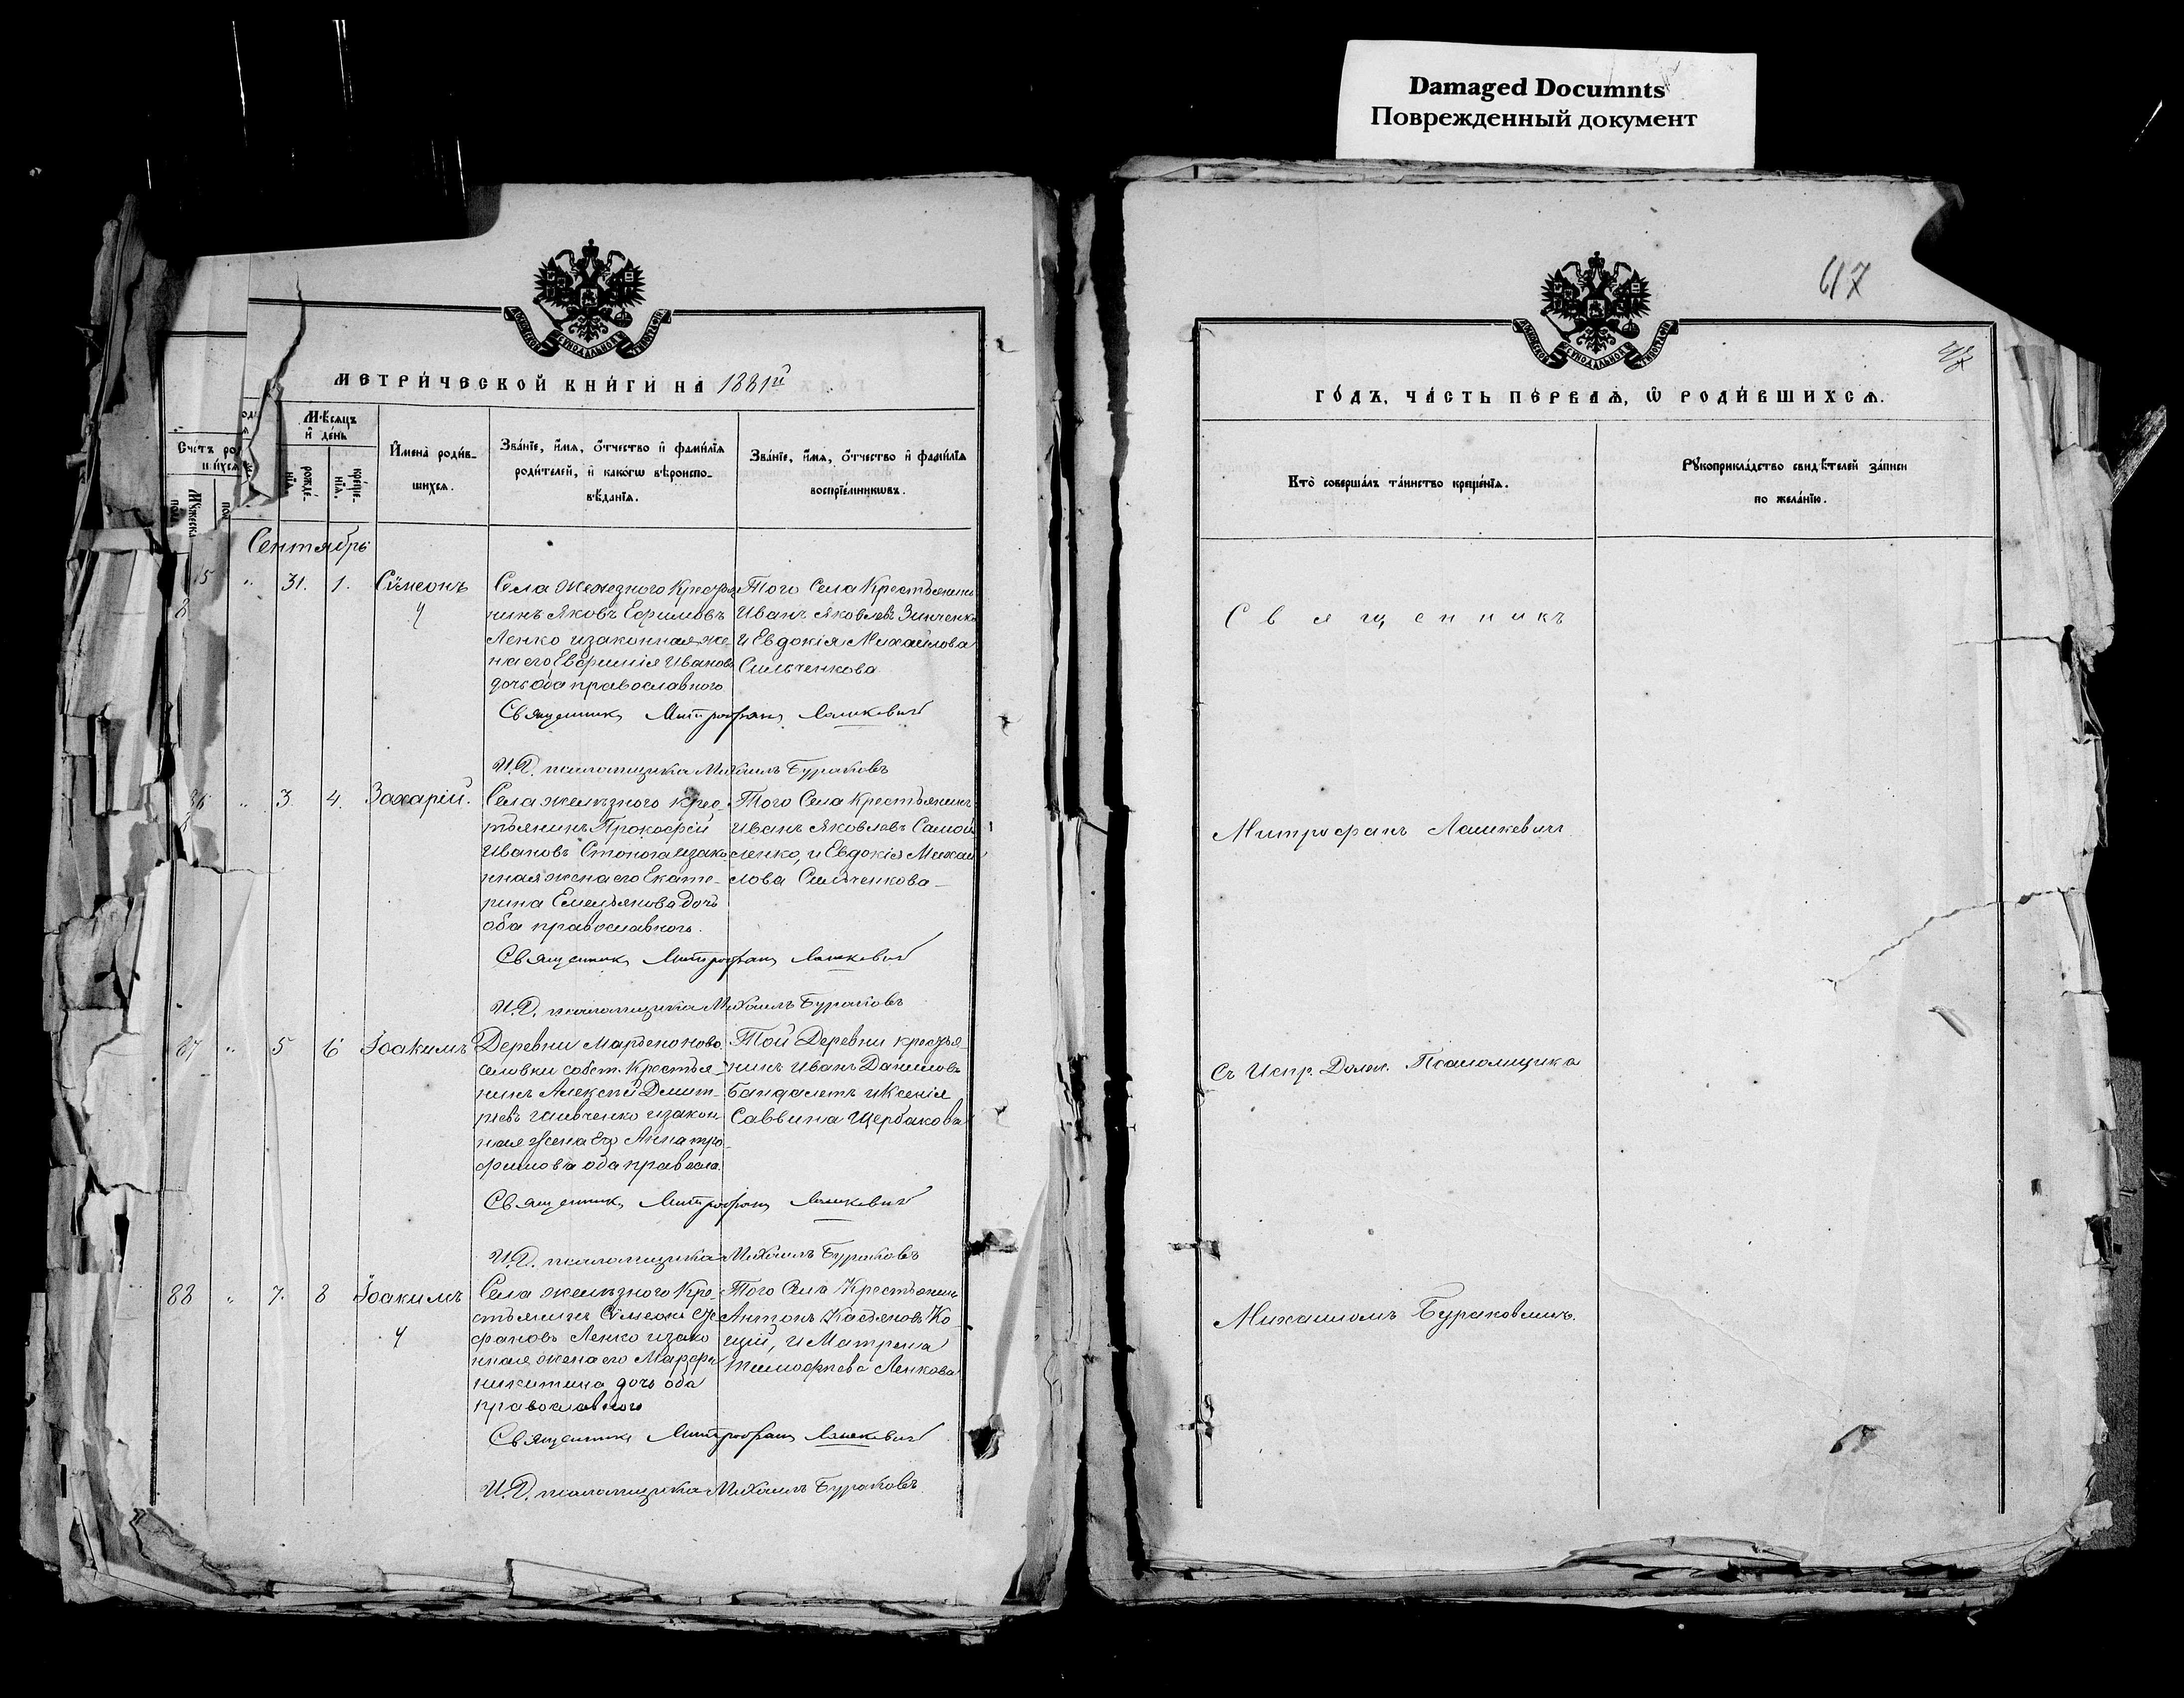 Damaged Documnts
Поврежденный документ
МЕТРИ́ЧЕСКОЙ КНИ́ГИ НА 1881й
Мѣсяцъ и҆ де́нь
Сче́тъ ро
Мꙋ́жеска
рожде́-нїѧ.
креще́-нїѧ.
И҆мена̀ роди́в-
шихсѧ.
Зва́нїе, и҆́мѧ, ѻ҆́тчество и҆ фами́лїѧ
роди́телей, и҆ како́гѡ вѣроиспо-
вѣ́данїѧ.
Зва́нїе, и҆́мѧ, ѻ҆́тчество и҆ фами́лїѧ
воспрїе́мникѡвъ.
Сентябрь
31. 1. Сѵмеонъ
нинъ Яковъ Ефимовъ
Ленко и законная же-
на его Евфимія Иванов
дочь оба православного
Того Села Крестьянинъ
Иванъ Яковлевъ Зинченко
и Евдокія Михайлова
Сильченкова
Священникъ Митрофанъ Лашкевичъ
И.Д. псаломщика Михаилъ Бураковъ
3. 4. Захарій.
Села желѣзного крес-
тьянинъ Прокофій
Ивановъ Стонога и зако
нная жена его Екате-
рина Емельянова дочь
оба православного.
Того Села Крестьянинъ
Иванъ Яковлевъ Самой
ленко, и Евдокія Михай
лова Сильченкова
Священникъ Митрофанъ Лашкевичъ
И.Д. псаломщика Михаилъ Бураковъ
87 " 5 6 Іоакимъ
Деревни
селовки собст. Крестья-
нинъ Алексѣй Дмит-
ріевъ и закон
ная Жена его Анна тро-
фимова оба правосла.
Той Деревни крестья-
нинъ Иванъ Даниловъ
и Ксенія
Саввина Щербакова
Священникъ Митрофанъ Лашкевичъ
И.Д. псаломщика Михаилъ Бураковъ
88 " 7. 8 Іоакимъ
Села желѣзного Кре-
стьянинъ Сѵмеонъ Сте
фановъ Ленко и зако
нная жена его Марфа
никитина дочь оба
православного
Того Села Крестьянинъ
Антонъ Касьяновъ Ко-
цій, и Матрена
тимофѣева Ленкова
Священникъ Митрофанъ Лашкевичъ
И.Д. псаломщика Михаилъ Бураковъ
617
ГО́ДЪ, ЧА́СТЬ ПЕ́РВАѦ, Ѽ РОДИ́ВШИХСѦ.
Кто̀ соверша́лъ та́инство креще́нїѧ.
Рꙋкоприкла́дство свидѣ́телей за́писи
по жела́нїю.
Священникъ
Митрофанъ Лашкевичъ
Съ Испр. Долж. Псаломщика
Михаиломъ Бураковымъ.